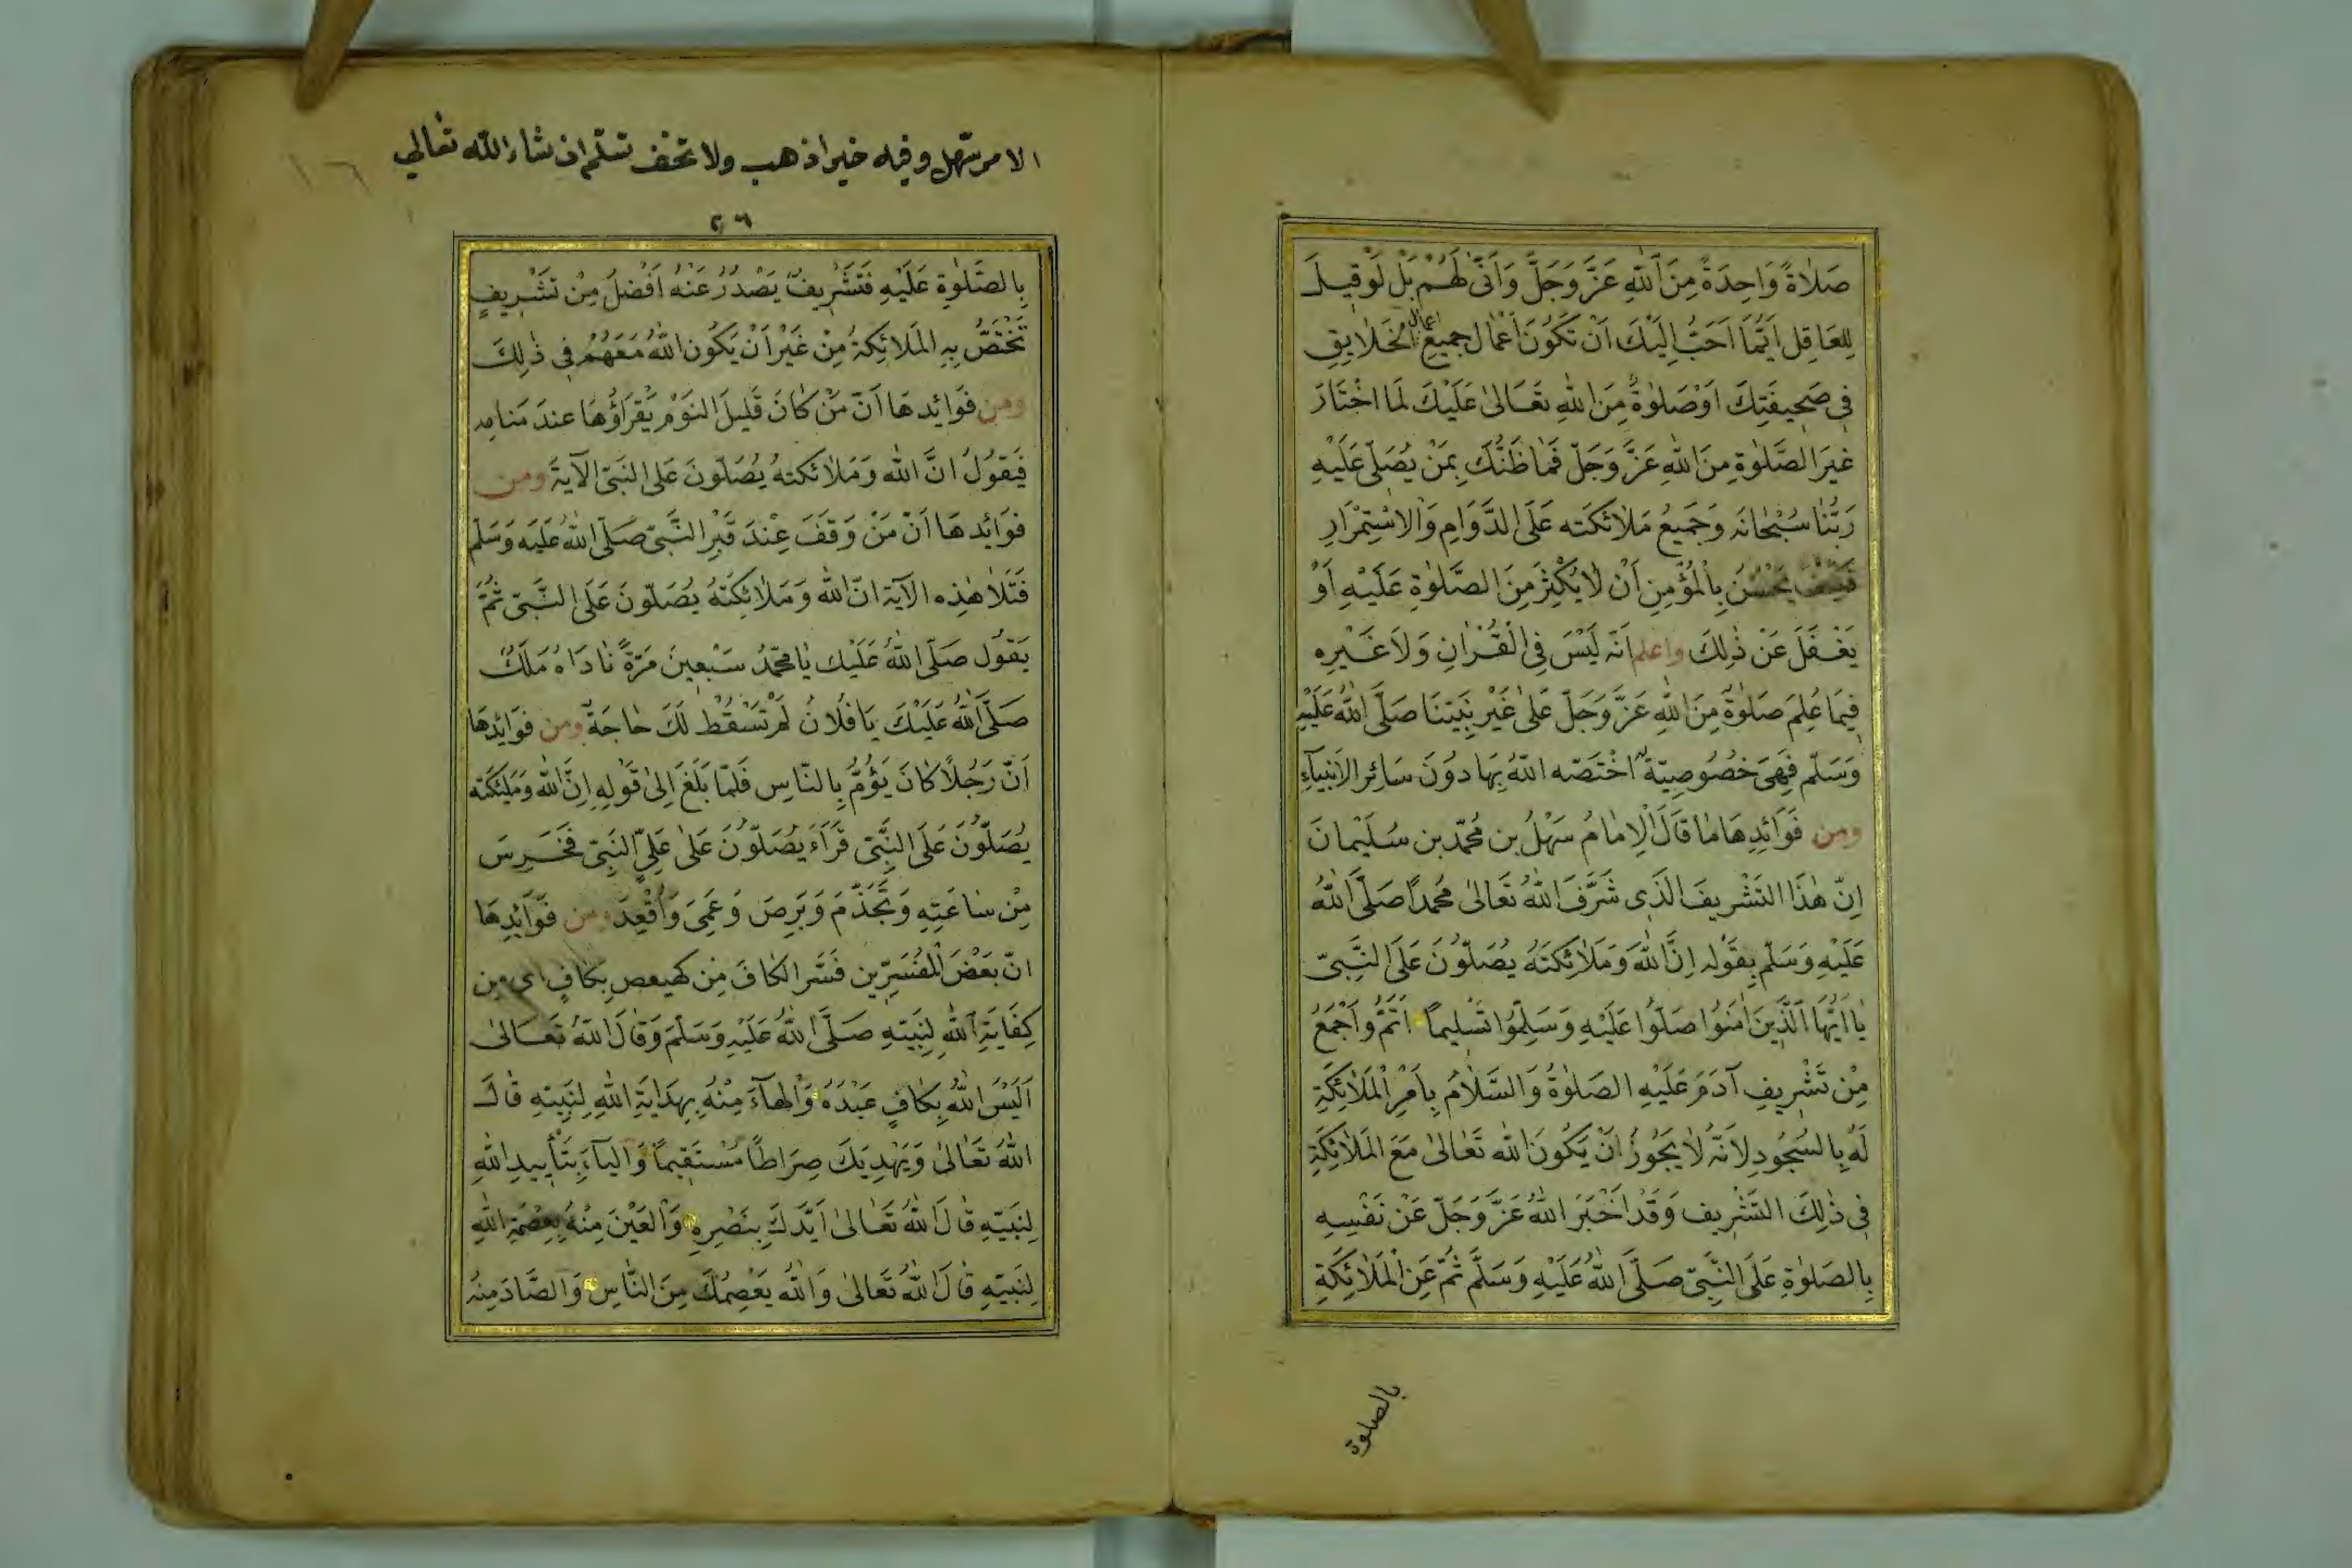 صَلَاةً وَاحِدَةً مِنَ اللهِ عَزَّ وَجَلَّ وَاَنّٰى لَهُمْ بَلْ لَوْ قِيلَ
لِلعَاقِلِ اَيُّمَا اَحَبُّ اِلَيْكَ اَنْ تَكُونَ اَعْمَال جميع اعمال الخَلَايِقِ
فِي صَحِيفَتِكَ اَوْ صَلٰوةٌ مِنَ اللهِ تعَالىٰ عَلَيْكَ لَمَا اخْتَارَ
غيَر الصَّلٰوةِ مِنَ اللهِ عَزَّ وَجَلّ فَمَا ظَنُّكَ بِمَنْ يُصَلّى عَلَيْهِ
رَبُّنَا سُبْحَانَه وَجَمِيعُ مَلَائكَته عَلَى الدَّوَامِ وَالاسْتِمْرَارِ
فَكَيْفَ يَحْسُنُ بِالْمُؤْمِنِ اَنْ لَا يُكْثِرَ مِنَ الصَّلٰوةِ عَلَيْهِ اَوْ
يَغْفَلَ عَنْ ذٰلِكَ واعلم اَنّه لَيْسَ فِى الْقُرْاٰنِ وَلَا غَيْرِه
فِيَما عُلِمَ صَلٰوةٌ مِنَ اللهِ عَزَّ وَجَلّ عَلىٰ غَيْرِ نَبِيّنَا صَلَّى اللهُ عَلَيْهِ
وَسَلّم فَهِىَ خصُوصِيّةٌ اخْتَصّه اللّهُ بِهَا دوُنَ سَائِر الاَنبِيَآءِ
ومن فَوَائِدِهَا مَا قَالَ الْاِمَامُ سَهْلُ بن مُحَمّد بن سُلَيْمَانَ
اِنّ هٰذَا التشْرِيفَ الّذِى شَرَّفَ اللهُ تَعَالىٰ مُحَمدًا صَلَّى اللهُ
عَلَيْهِ وَسَلّم بِقَوْلِه اِنَّ اللّهَ وَمَلَائِكَتَهُ يُصَلّوُنَ عَلَى النَّبِىّ
يَا اَيُّهَا الَّذِينَ اٰمَنُوا صَلّوُا عَلَيْهِ وَسَلّمُوا تَسْلِيماً اَتَمُّ وَاَجْمَعُ
مِنْ تَشْرِيفِ آدَمَ عَلَيْهِ الصَلٰوةُ وَالسَّلَامُ بِاَمْرِ الْمَلَائِكَةِ
لَهُ بِالسُجُودِ لِاَنَّهُ لَا يَجُوزُ اَنْ يَكُونَ اللهُ تَعَالىٰ مَعَ المَلَائِكَةِ
فِى ذٰلِكَ التَّشْرِيفِ وَقَدْ اَخْبَرَ اللهُ عَزَّ وَجَلّ عَنْ نَفْسِهِ
بِالصَلوٰةِ عَلَى النَّبِىّ صَلَّى اللهُ عَلَيْهِ وَسَلَّم ثُمّ عَنِ الْمَلَائِكَةِ
بالصلوة
الامر سهل وفيه خير اذهب ولا تخف تسلم ان شاء الله تعالي
١٦
٢٦
بِالصَّلٰوةِ عَلَيْهِ فَتَشْرِيفٌ يَصْدُرُ عَنْهُ اَفْضَلُ مِنْ تشْرِيفٍ
تَخْتَصُّ بِهِ المَلَائِكَةُ مِنْ غَيْرِ اَنْ يَكُونَ اللهُ مَعَهُمْ فِى ذٰلِكَ
ومن فَوَائِدِهَا اَنّ مَنْ كَانَ قَلِيلَ النوَمْ يَقْرَاؤُهَا عِندَ مَنامِه
فَيَقوُلُ انَّ اللّهَ وَمَلَائكتهُ يُصَلّونَ عَلى النبَىّ الآيةَ ومن
فوَائِدهَا اَنّ مَنْ وَقَفَ عِنْدَ قَبْرِ النَّبىّ صَلّى اللهُ عَلَيه وَسَلم
فَتَلَا هٰذِه الآيَة انّ اللّهَ وَمَلَائِكَتَهُ يُصَلّونَ عَلَى النَّبىّ ثُمَّ
يَقوُل صَلّى اللهُ عَلَيْك يَا مُحَمّدُ سَبْعِينَ مَرّةً نَادَاهُ مَلَكٌ
صَلَّى اللهُ عَلَيْكَ يَا فُلَانُ لَمْ تَسْقُطْ لَكَ حَاجَةٌ ومن فوَائِدِهَا
اَنّ رَجُلًا كَانَ يَؤُمُّ بِالنّاسِ فَلَمّا بَلَغَ اِلىٰ قَوْلِهِ اِنَّ اللهَ وَمَلٰئِكَته
يُصَلّوُنَ عَلَى النبِّى قَرَاَءَ يُصَلّوُنَ عَلىٰ عَلِىّ النَبِىّ فَخَرِسَ
مِنْ سَاعَتِهِ وَتَجَذّمَ وَبَرِصَ وَعَمِىَ وَاُقْعِدَ ومن فَوَآئِدِهَا
انّ بَعْضَ الْمُفَسِّرِين فَسَّر الكافَ مِن كهيعص بِكافٍ اى من
كِفَايَةِ اللهِ لِنَبِيّهِ صَلَّى اللهُ عَلَيْهِ وَسَلّمَ وَقَالَ اللهُ تعَالىٰ
اَلَيْسَ اللهُ بِكَافٍ عَبْدَهُ وَالهَآءَ مِنْهُ بِهِدَايَةِ اللهِ لِنَبِيّهِ قالَ
اللهُ تَعَالىٰ وَيَهْدِيَكَ صِرَاطًا مُسْتَقِيمًا وَاليآءَ بِتَأيِيدِ اللهِ
لِنبَيّهِ قالَ اللهُ تَعَالىٰ اَيَّدَكَ بِنَصْرِهِ وَالعَيْنَ مِنْهُ بِعِصْمَةِ اللهِ
لِنَبِيّهِ قالَ اللهُ تَعَالىٰ وَاللهُ يَعْصِمُكَ مِنَ النَّاسِ وَالصَّادَ مِنْهُ